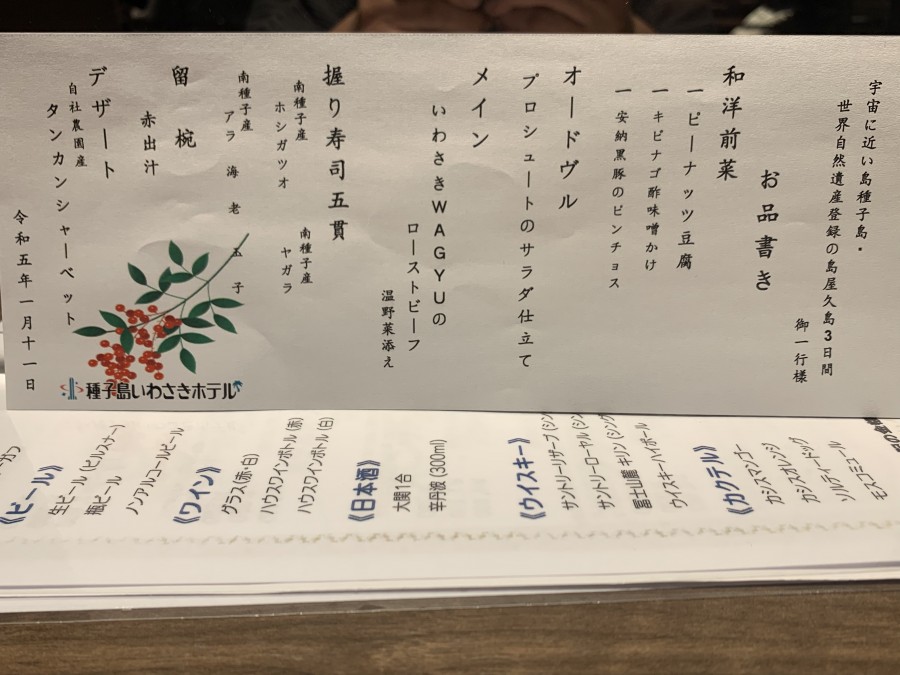 宇宙に近い島種子島・
世界自然遺産登録の島屋久島3日間
御一行様
お品書き
和洋前菜
一ピーナッツ豆腐
一キビナゴ酢味噌かけ
一安納黒豚のピンチョス
オードヴル
プロシュートのサラダ仕立て
メイン
いわさきWAGYUの
ローストビーフ
温野菜添え
握り寿司五貫
南種子産
ホシガツオ
南種子産
ヤガラ
南種子産
アラ 海老 玉子
留椀
赤出汁
デザート
自社農園産
タンカンシャーベット
令和五年一月十一日
種子島いわさきホテル
《ビール》
生ビール(ピルスナー)
瓶ビール
ノンアルコールビール
《ワイン》
グラス(赤・白)
ハウスワインボトル(赤)
ハウスワインボトル(白)
《日本酒》
大関1合
辛丹波(300ml)
《ウイスキー》
サントリーリザーブ(シン
サントリーローヤル(シン
富士山麓 キリン(シング
ウイスキーハイボール
《カクテル》
カシスマンゴー
カシスオレンジ
カシスソーダ
ソルティードッグ
モスコミュール